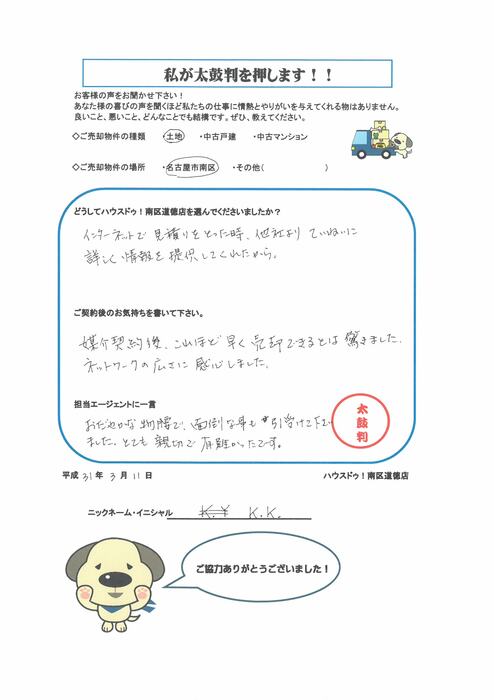 私が太鼓判を押します！！
お客様の声をお聞かせ下さい！
あなた様の喜びの声を聞くほど私たちの仕事に情熱とやりがいを与えてくれる物はありません。
良いこと、悪いこと、どんなことでも結構です。ぜひ、教えてください。
◇ご売却物件の種類 ・土地 ・中古戸建 ・中古マンション
◇ご売却物件の場所 ・名古屋市南区 ・その他( )
どうしてハウスドゥ！南区道徳店を選んでくださいましたか？
インターネットで見積りをとった時、他社よりていねいに
詳しく情報を提供してくれたから。
ご契約後のお気持ちを書いて下さい。
媒介契約後、これほど早く売却できるとは驚きました。
ネットワークの広さに感心しました。
担当エージェントに一言
おだやかな物腰で、面倒な事も引受けて下さい
ました。とても親切で有難かったです。
太鼓判
平成 31年 3月 11日 ハウスドゥ！南区道徳店
ニックネーム・イニシャル K.Y K.K.
ご協力ありがとうございました！